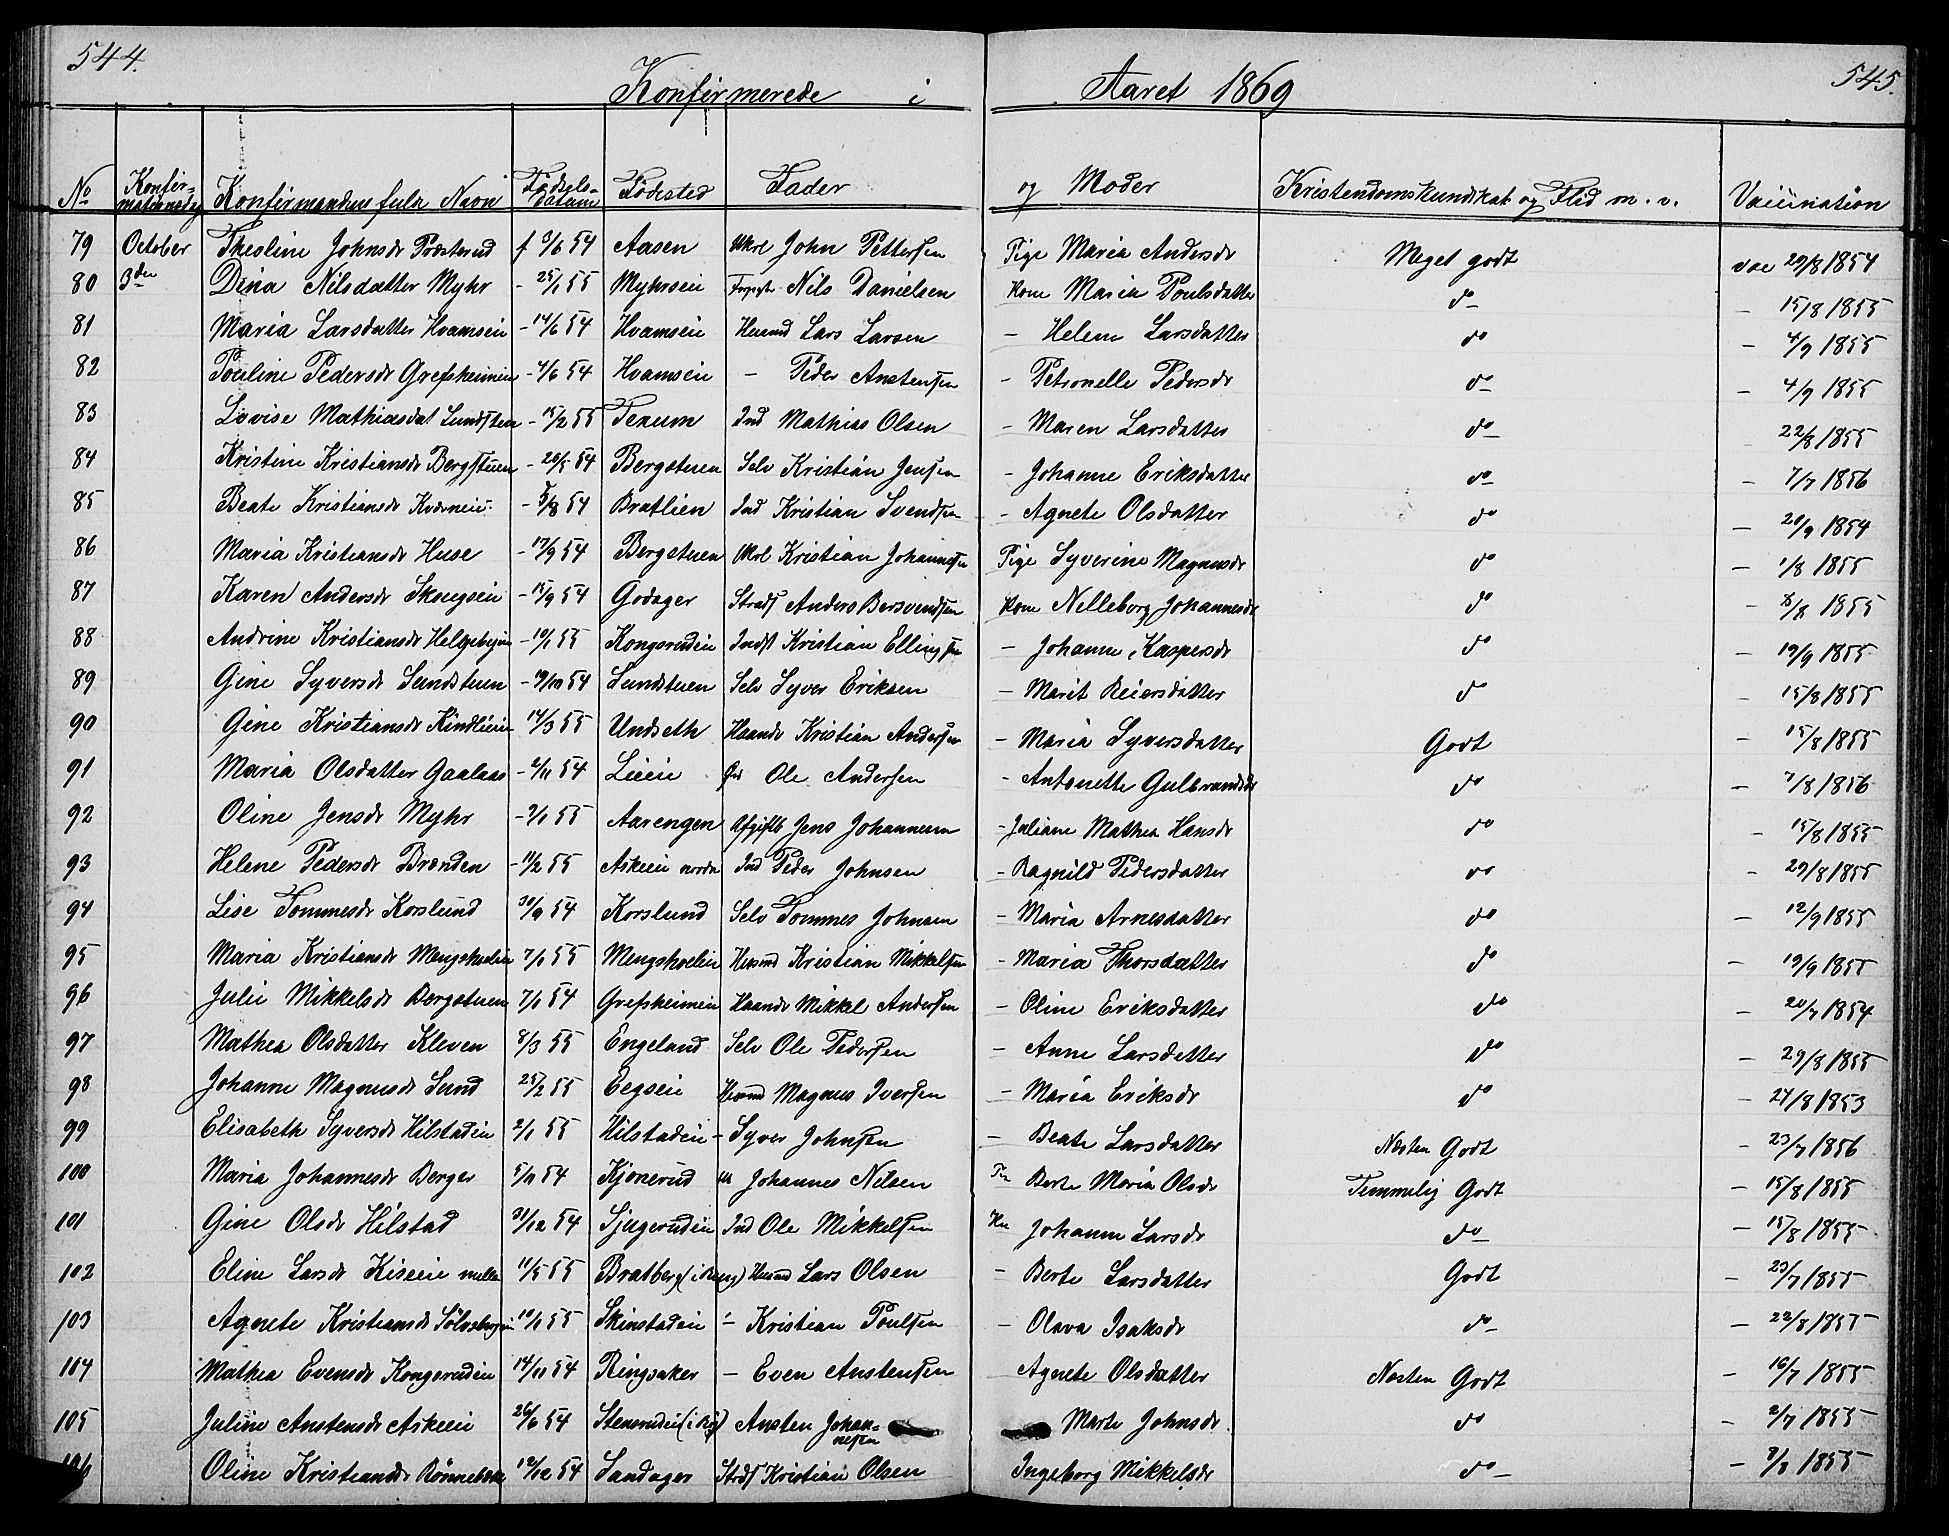 544.
545.
Konfirmerede i Aaret 1869
No Konfirmationsdag Konfirmandens fulde Navn Fødselsdatum Fødested Fader og Moder Kristendomskundskab og Flid m. v. Vaccination
79 October Theoline Johnsdr f 3/6 54 Aasen Ukrl John Pettersen Pige Maria Andersdr Meget godt vac 29/8 1854
80 3die Dina Nilsdatter Myhr - 25/1 55 Myhrseie Nils Danielsen Kone Maria Poulsdatter do - 15/8 1855
81 Maria Larsdatter Hvamseie - 14/6 54 Hvamseie Husmd Lars Larsen - Helene Larsdatter do - 4/9 1855
82 Pouline Pedersdr Grefsheimeie - 4/6 54 Hvamseie - Peder Anstensen - Petronelle Pedersdr do - 4/9 1855
83 Lovise Mathiasdat Lundsten - 15/2 55 Texum Ind Mathias Olsen - Maren Larsdatter do 22/8 1855
84 Kristine Kristiansdr Bergstuen - 26/5 54 Bergstuen Selv Kristian Jensen - Johanne Eriksdatter do - 7/7 1856
85 Beate Kristiansdr Kverneie - 5/8 54 Bratlien Ind Kristian Svendsen - Agnete Olsdatter do - 20/9 1854
86 Maria Kristiansdr Huse - 17/9 54 Bergstuen Ukrl Kristian Johannesen Pige Syverine Magnusdr do - 1/8 1855
87 Karen Andersdr Skougseie - 15/9 54 Godager Strads Anders Bersvendsen Kone Nelleborg Johannesdr do - 8/8 1855
88 Andrine Kristiansdr - 10/1 55 Kongsrudeie Indst Kristian Ellingsen - Johanne Kaspersdr do - 19/9 1855
89 Gine Syversdr Sundstuen - 19/10 54 Sundstuen Selv Syver Eriksen - Marit Reiersdatter do - 15/8 1855
90 Gine Kristiansdr Kindlieie 14/3 55 Undseth Haandv Kristian Andersen - Maria Syversdatter Godt - 15/8 1855
91 Maria Olsdatter Gaalaas - 2/11 54 Lieeie Ole Andersen - Antonette Gulbrandsdr do - 7/8 1856
92 Oline Jensdr Myhr - 9/1 55 Aarengen Afgiftsb Jens Johannesen - Juliane Mathea Hansdr do - 15/8 1855
93 Helene Pedersdr Brænden - 11/2 55 Askeeie nordre Ind Peder Johnsen - Ragnild Pedersdatter do - 29/8 1855
94 Lise Tommesdr Korslund 30/9 54 Korslund Selv Tommes Johnsen - Maria Arnesdatter do - 12/9 1855
95 Maria Kristiansdr Mengshoeleie 7/1 55 Mengshoeleie Husmd Kristian Mikkelsen - Maria Thorsdatter do - 19/9 1855
96 Julie Mikkelsdr Bergstuen 7/1 54 Grefsheimeie Haandv Mikkel Andersen - Oline Eriksdatter do - 20/7 1854
97 Mathea Olsdatter Kleven 8/3 55 Engeland Selv Ole Pedersen - Anne Larsdatter do - 29/8 1855
98 Johanne Magnusdr Sund 25/2 55 Eegseie Husmd Magnus Iversen - Maria Eriksdr do - 24/8 1853
99 Elisabeth Syversdr Hilstadeie 2/1 55 Hilstadeie - Syver Johnsen - Beate Larsdatter Næsten Godt - 23/7 1856
100 Maria Johannesdr Berger 5/11 54 Kjonerud Johannes Nilsen Berte Maria Olsdr Temmelig Godt - 15/8 1855
101 Gine Olsdr Hilstad 31/12 54 Sjugerudeie Ind Ole Mikkelsen Kn Johanne Larsdr do - 15/8 1855
102 Eline Larsdr Kiseeie mellem 11/5 55 Bratberg (i Ring) Husmd Lars Olsen - Berte Larsdatter Godt - 23/7 1855
103 Agnete Kristiansdr Sølvsbergeie 10/1 55 Skinstadeie - Kristian Poulsen - Olava Isaksdr do - 22/8 1855
104 Mathea Evensdr Kongsrudeie 14/11 54 Ringsaker - Even Anstensen Agnete Olsdatter Næsten Godt - 16/7 1855
105 Juline Anstensdr Askeeie 26/6 54 Stensrudeie (i Rg) Ansten Johannesen Marte Johnsdr do - 2/7 1855
106 Oline Kristiansdr 12/12 54 Sandager Strds Kristian Olsen Ingeborg Mikkelsdr do - 1855